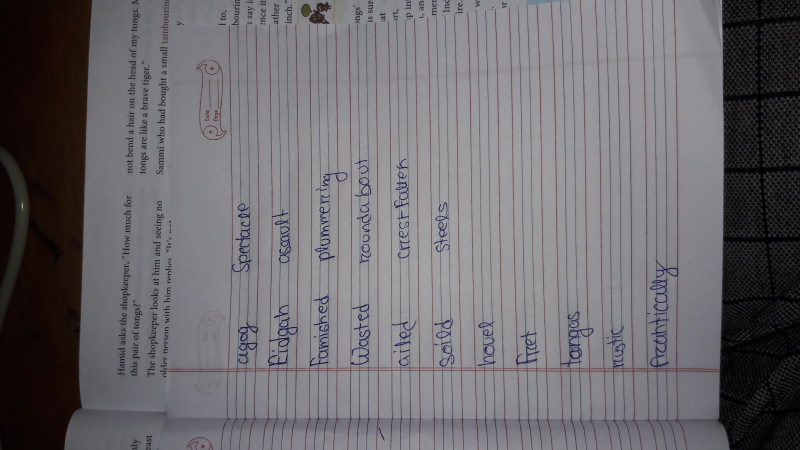 Hamid asks the shopkeeper, "How much for
this pair of tongs?"
The shopkeeper looks at him and seeing no
older person with him replies, "It's not
not bend a hair on the head of my tongs. M
tongs are like a brave tiger."
Sammi who had bought a small tambourin
Date
Page
agog Spectacle
Eidgah assault
Famished plummering
Wasted roundabout
ailed crrestfallen
Soild steels
hovel
Fret
tongas
rustic
Frantically